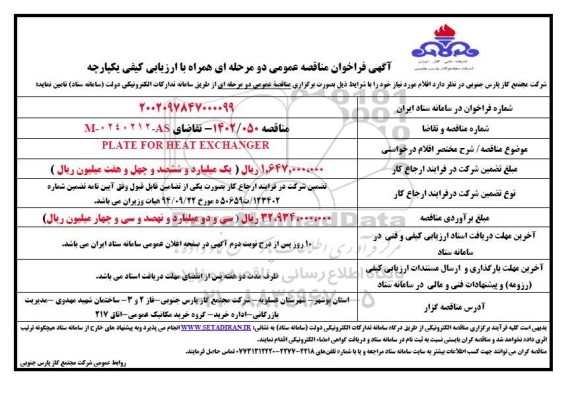 شرکت ملی گاز ایران
شرکت مجتمع گاز پارس جنوبی
آگهی فراخوان مناقصه عمومی دو مرحله ای همراه با ارزیابی کیفی یکپارچه
شرکت مجتمع گاز پارس جنوبی در نظر دارد اقلام مورد نیاز خود را با شرایط ذیل بصورت برگزاری مناقصه عمومی دو مرحله ای از طریق سامانه تدارکات الکترونیکی دولت (سامانه ستاد) تامین نماید:
شماره فراخوان در سامانه ستاد ایران
۲۰۰۲۰۹۷۸۴۷۰۰۰۰۹۹
شماره مناقصه و تقاضا
مناقصه ۱۴۰۲/۰۵۰ – تقاضای M-۰۲۴۰۲۱۲-AS
موضوع مناقصه / شرح مختصر اقلام درخواستی
PLATE FOR HEAT EXCHANGER
مبلغ تضمین شرکت در فرایند ارجاع کار
۱,۶۴۷,۰۰۰,۰۰۰ ریال ( یک میلیارد و ششصد و چهل و هفت میلیون ریال )
نوع تضمین شرکت درفرایند ارجاع کار
تضمین شرکت در فرایند ارجاع کار بصورت یکی از تضامین قابل قبول وفق آیین نامه تضمین شماره
۱۲۳۴۰۲/ت۵۰۶۵۹ه مورخ ۹۴/۰۹/۲۲ هیات وزیران می باشد.
مبلغ برآوردی مناقصه
۳۲,۹۳۴,۰۰۰,۰۰۰ ریال ( سی و دو میلیارد و نهصد و سی و چهار میلیون ریال)
آخرین مهلت دریافت اسناد ارزیابی کیفی و فنی در
سامانه ستاد
۱۰ روز پس از درج نوبت دوم آگهی در صفحه اعلان عمومی سامانه ستاد ایران می باشد.
آخرین مهلت بارگذاری و ارسال مستندات ارزیابی کیفی
(رزومه) و پیشنهادات فنی و مالی در سامانه ستاد
ظرف مدت دو هفته پس از انتهای مهلت دریافت اسناد می باشد.
آدرس مناقصه گزار
استان بوشهر – شهرستان عسلویه – شرکت مجتمع گاز پارس جنوبی – فاز ۲ و ۳ – ساختمان شهید مهدوی – مدیریت
بازرگانی – اداره خرید – گروه خرید مکانیک عمومی – اتاق ۲۱۷
بدیهی است کلیه فرآیند برگزاری مناقصه الکترونیکی از طریق درگاه سامانه تدارکات الکترونیکی دولت (سامانه ستاد) به نشانی: WWW.SETADIRAN.IR انجام می پذیرد و به پیشنهاد های خارج از سامانه ستاد هیچگونه ترتیب
اثری داده نخواهد شد و مناقصه گران بایستی نسبت به ثبت نام در سامانه ستاد و دریافت گواهی امضاء الکترونیکی اقدام نمایند.
مناقصه گران می توانند جهت کسب اطلاعات بیشتر به سایت سامانه ستاد مراجعه و یا با شماره تلفن های ۲۲۱۸-۲۲۷۷-۰۷۷۳۱۳۱۲۲۲۰ تماس حاصل فرمایند.
روابط عمومی شرکت مجتمع گاز پارس جنوبی